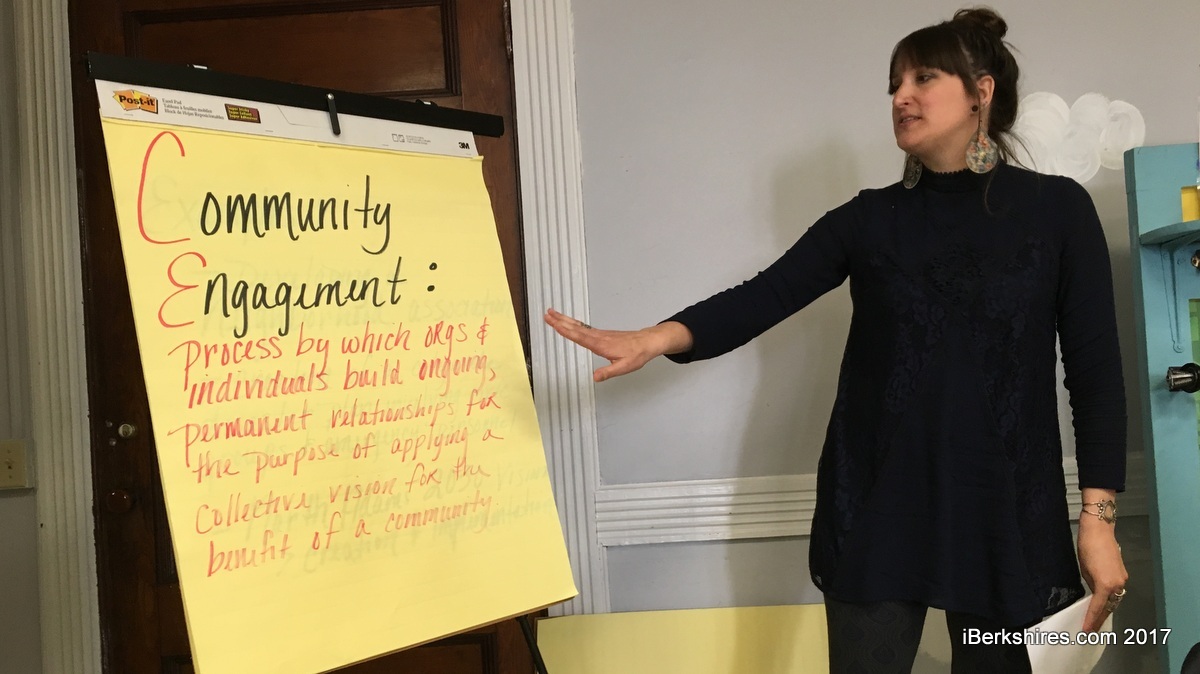 Post-it
3M
Community
Engagement:
Process by which orgs &
individuals build ongoing,
permanent relationships for
the purpose of applying a
collective vision for the
benefit of a community
iBerkshires.com 2017